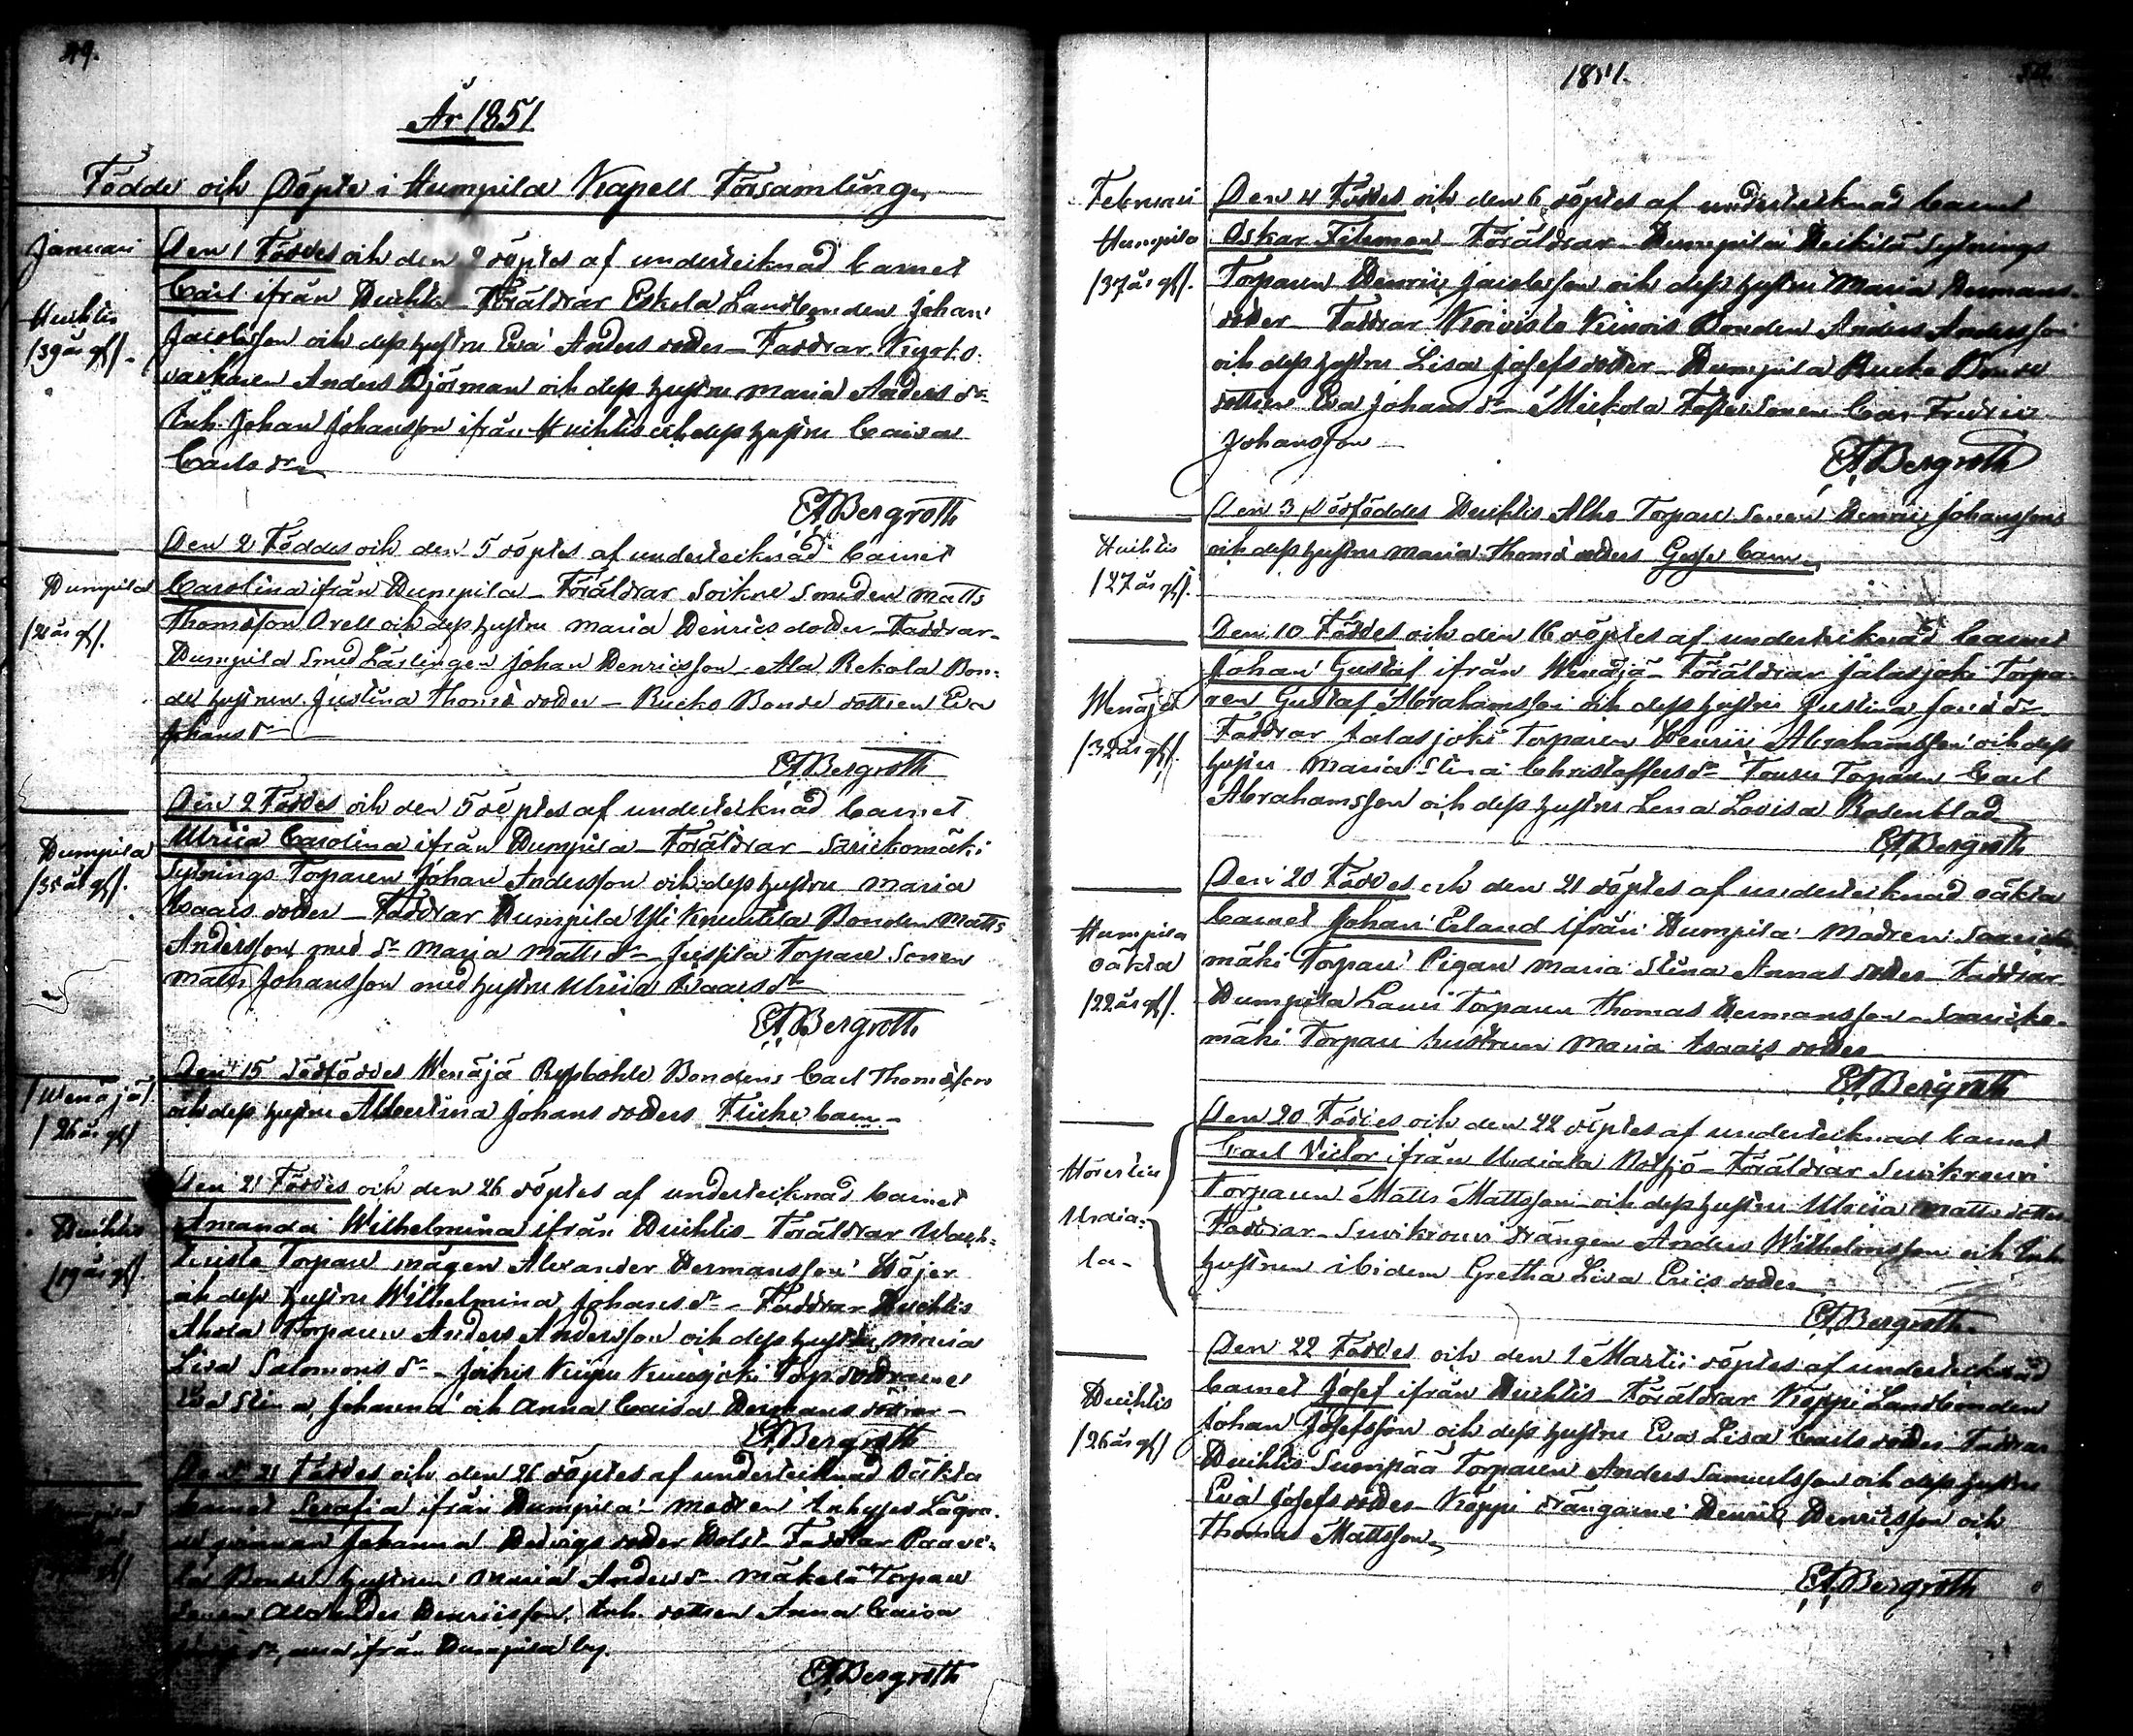 49.
År 1851
Födde och Döpte i Humpila Kapell Församling
Januari
Huhtis
/39 år gl/.
Den 1 Föddes och den 2 döptes af undertecknad barnet
Carl ifrån Huhtis Föräldrar Eskola Landbonden Johan
Jacobsson och dess hustru Eva Anders dotter – Faddrar Kyrko
väktaren Anders Björman och dess hustru Maria Anders dr
Inh. Johan Johansson ifrån Huhtis och dess hustru Caisa
Carls dr
EABergroth
Humpila
Den 2 Föddes och den 5 döptes af undertecknad barnet
Carolina ifrån Humpila – Föräldrar Sockne Smeden Matts
Thomasson Orell och dess hustru Maria Henrics dotter – Faddrar
Humpila Smed Lärlingen Johan Henricsson – Ala Rekola Bon-
de hustrun Justina Thomæ dotter – Rucko Bonde dottren Eva
Johans dr
EABergroth
Humpila
/35 år gl/.
Den 2 Föddes och den 5 döptes af undertecknad barnet
Ulrica Carolina ifrån Humpila – Föräldrar – Saarickomäki
Sytnings Torparen Johan Andersson och dess hustru Maria
Isaacs dotter – Faddrar Humpila Yli Knuutila Bonden Matts
Andersson med dr Maria Matts dr – Torpare Sonen
Matts Johansson med hustru Ulrica Isaacs dr
EABergroth
/Wenäjä/
/26 år gl/
Den 15 dödföddes Wenäjä Bondens Carl Thomasson
och dess hustru Albertina Johans dotters Flicke barn –
Huhtis
/19 år gl/.
Den 21 Föddes och den 26 döptes af undertecknad barnet
Amanda Wilhelmina ifrån Huhtis – Föräldrar
Torpare mågen Alexander Hermansson Höjer
och dess hustru Wilhelmina Johans dr – Faddrar Huhtis
Ahola Torparen Anders Andersson och dess hustru Maria
Lisa Salomons dr –
Eva Stina, Johanna och Anna Caisa Hermans döttrar –
EABergroth
Den 21 Föddes och den 26 döptes af undertecknad Oäkta
barnet Serafia ifrån Humpila – modren Inhyses Lägra-
de qvinnan Johanna Hedvigs dotter Holst – Faddrar Paavo-
la Bonde hustrun Maria Anders dr Mäkelä Torpare
Sonen Alexander Henricsson, Inh. dottren Anna Caisa
dr, alla ifrån Humpila by.
EABergroth
1851.
50.
Februari
Humpila
/37 år gl/.
Den 4 Föddes och den 6 döptes af undertecknad barnet
Oskar Fileman – Föräldrar Humpila Heikilä Sytnings
Torparen Henric Jacobsson och dess hustru Maria Hermans-
dotter – Faddrar Koivisto Bonden Anders Andersson
och dess hustru Lisa Josefs dotter – Humpila Rucko Bonde
dottren Eva Johans dr – Mickola Foster Sonen Carl Fredric
Johansson
EABergroth
Huhtis
/27 år gl/.
Den 3 dödföddes Huhtis Alho Torpare Sonen Henric Johanssons
och dess hustru Maria Thomæ dotters Gosse barn
Wenäjä
/32 år gl/.
Den 10 Föddes och den 16 döptes af undertecknad barnet
Johan Gustaf ifrån Wenäjä – Föräldrar Jalasjoki Torpa-
ren Gustaf Abrahamsson och dess hustru Justina dr
Faddrar Jalasjoki Torparen Henric Abrahamsson och dess
hustru Maria Stina Christoffers dr – Torparen Carl
Abrahamsson och dess hustru Lena Lovisa Rosenblad
EABergroth
Humpila
oäkta
/22 år gl/.
Den 20 Föddes och den 21 döptes af undertecknad oäkta
barnet Johan Erland ifrån Humpila Modren Saaricko-
mäki Torpare Pigan Maria Stina Annas dotter – Faddrar
Humpila Lauri Torparen Thomas Hermansson – Saaricko-
mäki Torpare hustrun Maria Isaacs dotter
EABergroth
Hörestin
Urdia-
la –
Den 20 Föddes och den 22 döptes af undertecknad barnet
Carl Victor ifrån Urdiala Notsjö – Föräldrar Suvikrouvi
Torparen Matts Mattsson och dess hustru Ulrica Matts dotter
Faddrar – Suvikrouvi drängen Anders Wilhelmsson och Inh.
hustrun ibidem Gretha Lisa Erics dotter
EABergroth
Huhtis
/26 år gl/
Den 22 Föddes och den 1 Martii döptes af undertecknad
barnet Josef ifrån Huhtis – Föräldrar Keppi Landbonden
Johan Josefsson och dess hustru Eva Lisa Carls dotter Faddrar
Huihtis Suonpää Torparen Anders Samuelsson och dess hustru
Eva Josefs dotter – Keppi drängarne Henric Henricsson och
Thomas Mattsson
EABergroth